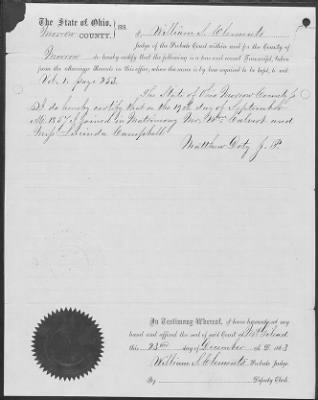 The State of Ohio,
Morrow COUNTY. } ss. I, William S. Clements
Judge of the Probate Court within and for the County of
Morrow do hereby certify that the following is a true and correct Transcript, taken
from the Marriage Records in this office, where the same is by law required to be kept, to wit:
Vol. 1. page 253.
The State of Ohio Morrow County ss
I do hereby certify that on the 19th day of September
AD. 1857 I joined in Matrimony Mr. Wm Calvert and
Miss Lucinda Campbell
Matthew Doty J. P.
In Testimony Whereof, I have hereunto set my
hand and affixed the seal of said Court at Mt. Gilead
this 23rd day of December A. D. 1883
William S. Clements Probate Judge.
By Deputy Clerk.